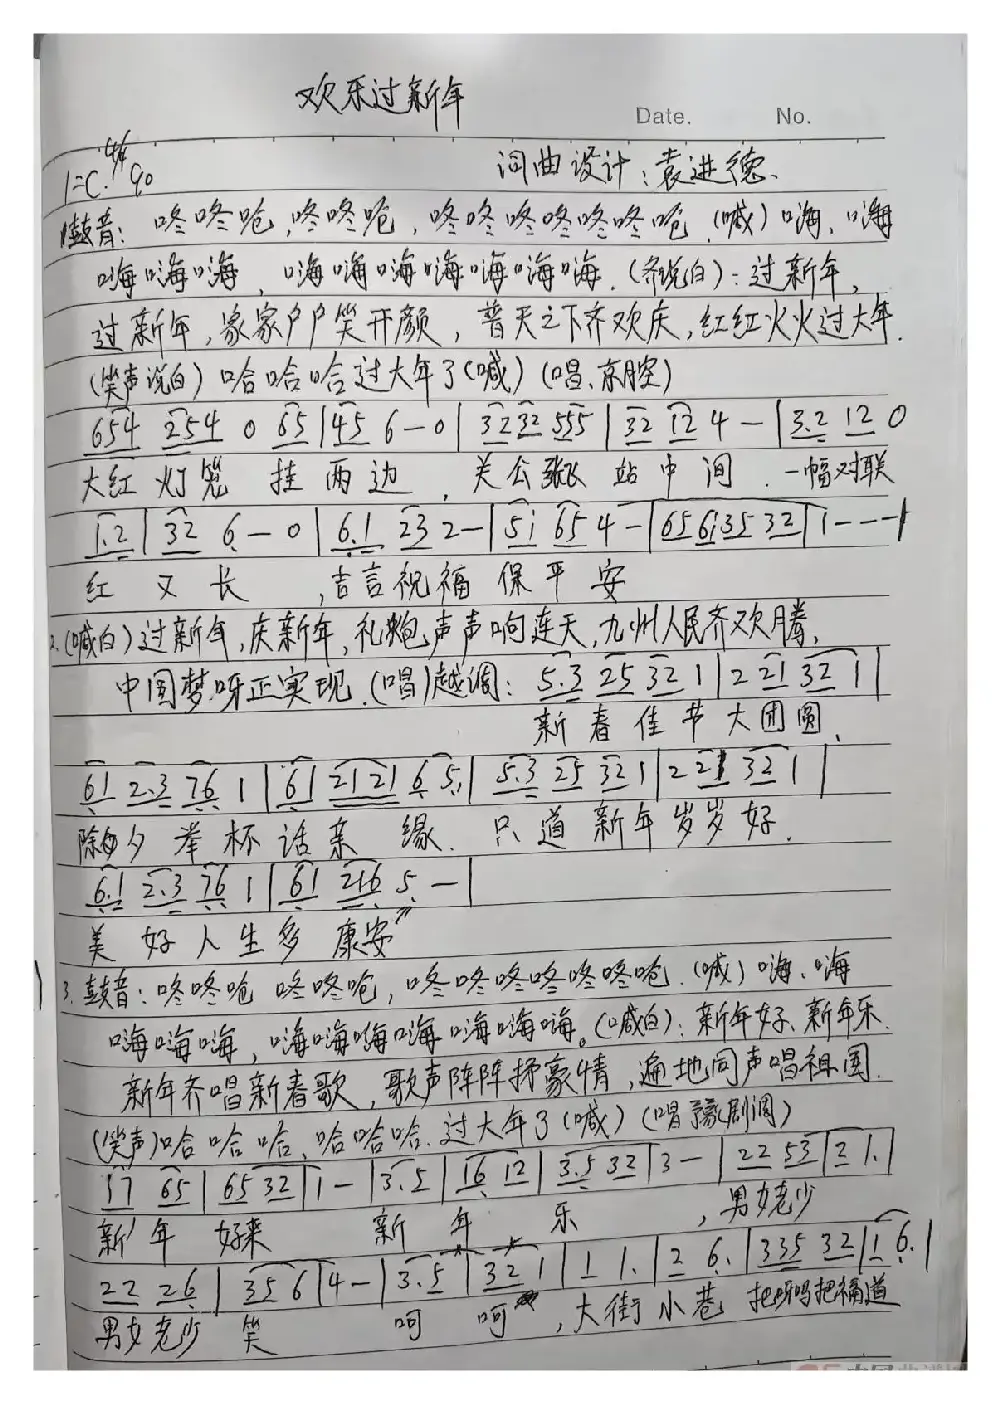 欢乐过新年
Date. No.
1=C. 4/4 90 词曲设计:袁进德.
1鼓音: 咚咚呛,咚咚呛,咚咚咚咚咚咚呛.(喊)嗨、嗨
嗨嗨嗨,嗨嗨嗨嗨嗨嗨嗨.(齐说白):过新年,
过新年,家家户户笑开颜,普天之下齐欢庆,红红火火过大年.
(笑声说白)哈哈哈过大年了(喊)(唱、京腔)
654 254 0 65|45 6-0|3232 555|32 12 4-|3.2 12 0
大红灯笼 挂两边,关公张飞站中间.一幅对联
1.2|32 6-0|6.1 23 2-|51 65 4-|65613532|1---|
红又长,吉言祝福保平安
2.(喊白)过新年,庆新年,礼炮声声响连天,九州人民齐欢腾,
中国梦呀正实现.(唱)越调: 5.3 25 32 1|2 21 32 1|
新春佳节大团圆,
61 2.3 76 1|61 2121 6 5|5.3 25 32 1|2 21 32 1|
除夕举杯话亲缘.只道新年岁岁好.
6.1 2.3 76 1|61 216 5-|
美好人生多康安"
3.鼓音:咚咚呛 咚咚呛,咚咚咚咚咚咚呛.(喊)嗨、嗨
嗨嗨嗨,嗨嗨嗨嗨嗨嗨嗨。(喊白):新年好、新年乐.
新年齐唱新春歌,歌声阵阵抒豪情,遍地同声唱祖国.
(笑声)哈哈哈、哈哈哈.过大年了(喊)(唱豫剧调)
17 65|65 32|1-|3.5|16 12|3.5 32|3-|22 53|2 1.|
新年好来 新年乐,男女老少
22 26|35 6|4-|3.5|32 1|1 1.|2 6.|335 32|1 6.|
男女老少笑呵呵,大街小巷 把呀吗把福道